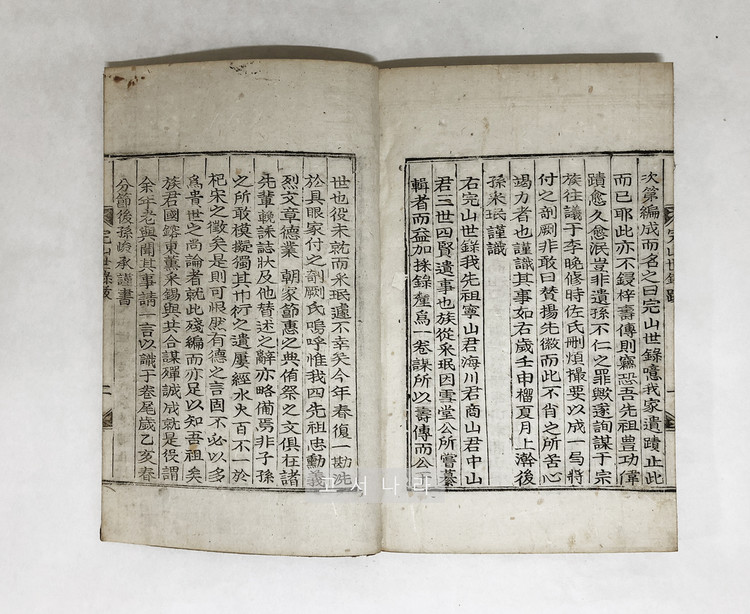 次第編成而名之曰完山世錄噫我家遺蹟止此
而已耶此亦不鋟梓壽傳則竊恐吾先祖豊功偉
蹟愈久愈泯豈非遺孫不仁之罪歟遂詢謀于宗
族往議于李晩修時佐氏刪煩撮要以成一局將
付之剞劂非敢曰賛揚先徽而此不肖之所苦心
竭力者也謹識其事如右歲壬申榴夏月上澣後
孫釆珉謹識
右完山世錄我先祖寧山君海川君商山君中山
君三世四賢遺事也族從釆珉因雪堂公所嘗纂
輯者而益加採錄 爲一卷謀所以壽傳而公
世也役未就而釆珉遽不幸矣今年春復一勘洗
於具眼家付之剞劂氏嗚呼惟我四先祖忠勳義
烈文章德業 朝家節惠之典侑祭之文俱在諸
先輩輓誄誌狀及他替述之辭亦略備焉非子孫
之所敢模擬獨其巾衍之遺屢經水火百不一於
杞宋之徵矣是則可恨然有德之言固不必以多
爲貴世之尚論者就此殘編而亦足以知吾祖矣
族君國鎔東薰釆錫與共合謀殫誠成就是役謂
余年老與聞其事請一言以識于卷尾歲乙亥春
分節後孫 承謹書
完山世錄跋
一
完山世錄跋
二
고서나라